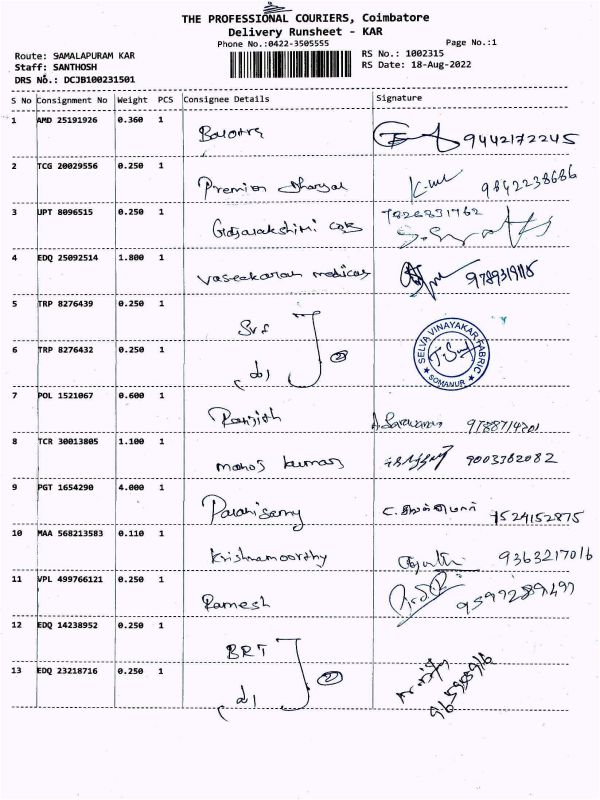 THE PROFESSIONAL COURIERS, Coimbatore
Delivery Runsheet - KAR
Phone No.:0422-3505555
Page No.:1
Route: SAMALAPURAM KAR
RS No.: 1002315
Staff: SANTHOSH
RS Date: 18-Aug-2022
DRS No.: DCJB100231501
S No Consignment No Weight PCS Consignee Details Signature
1 AMD 25191926 0.360 1 9442172245
2 TCG 20029556 0.250 1 Premier 9842238686
3 UPT 8096515 0.250 1
4 EDQ 25092514 1.800 1 Vaseekaran medicas
5 TRP 8276439 0.250 1
SELVA VINAYAKAR FABRIC
SOMANUR
6 TRP 8276432 0.250 1 (2)
7 POL 1521067 0.600 1 Ranjith A. Saravanan
8 TCR 30013805 1.100 1 manoj kumar 9003362082
9 PGT 1654290 4.000 1 Palanisamy 7524152875
10 MAA 568213583 0.110 1 Krishnamoorthy 9363217016
11 VPL 499766121 0.250 1 Ramesh
12 EDQ 14238952 0.250 1 BRT
13 EDQ 23218716 0.250 1 (2)